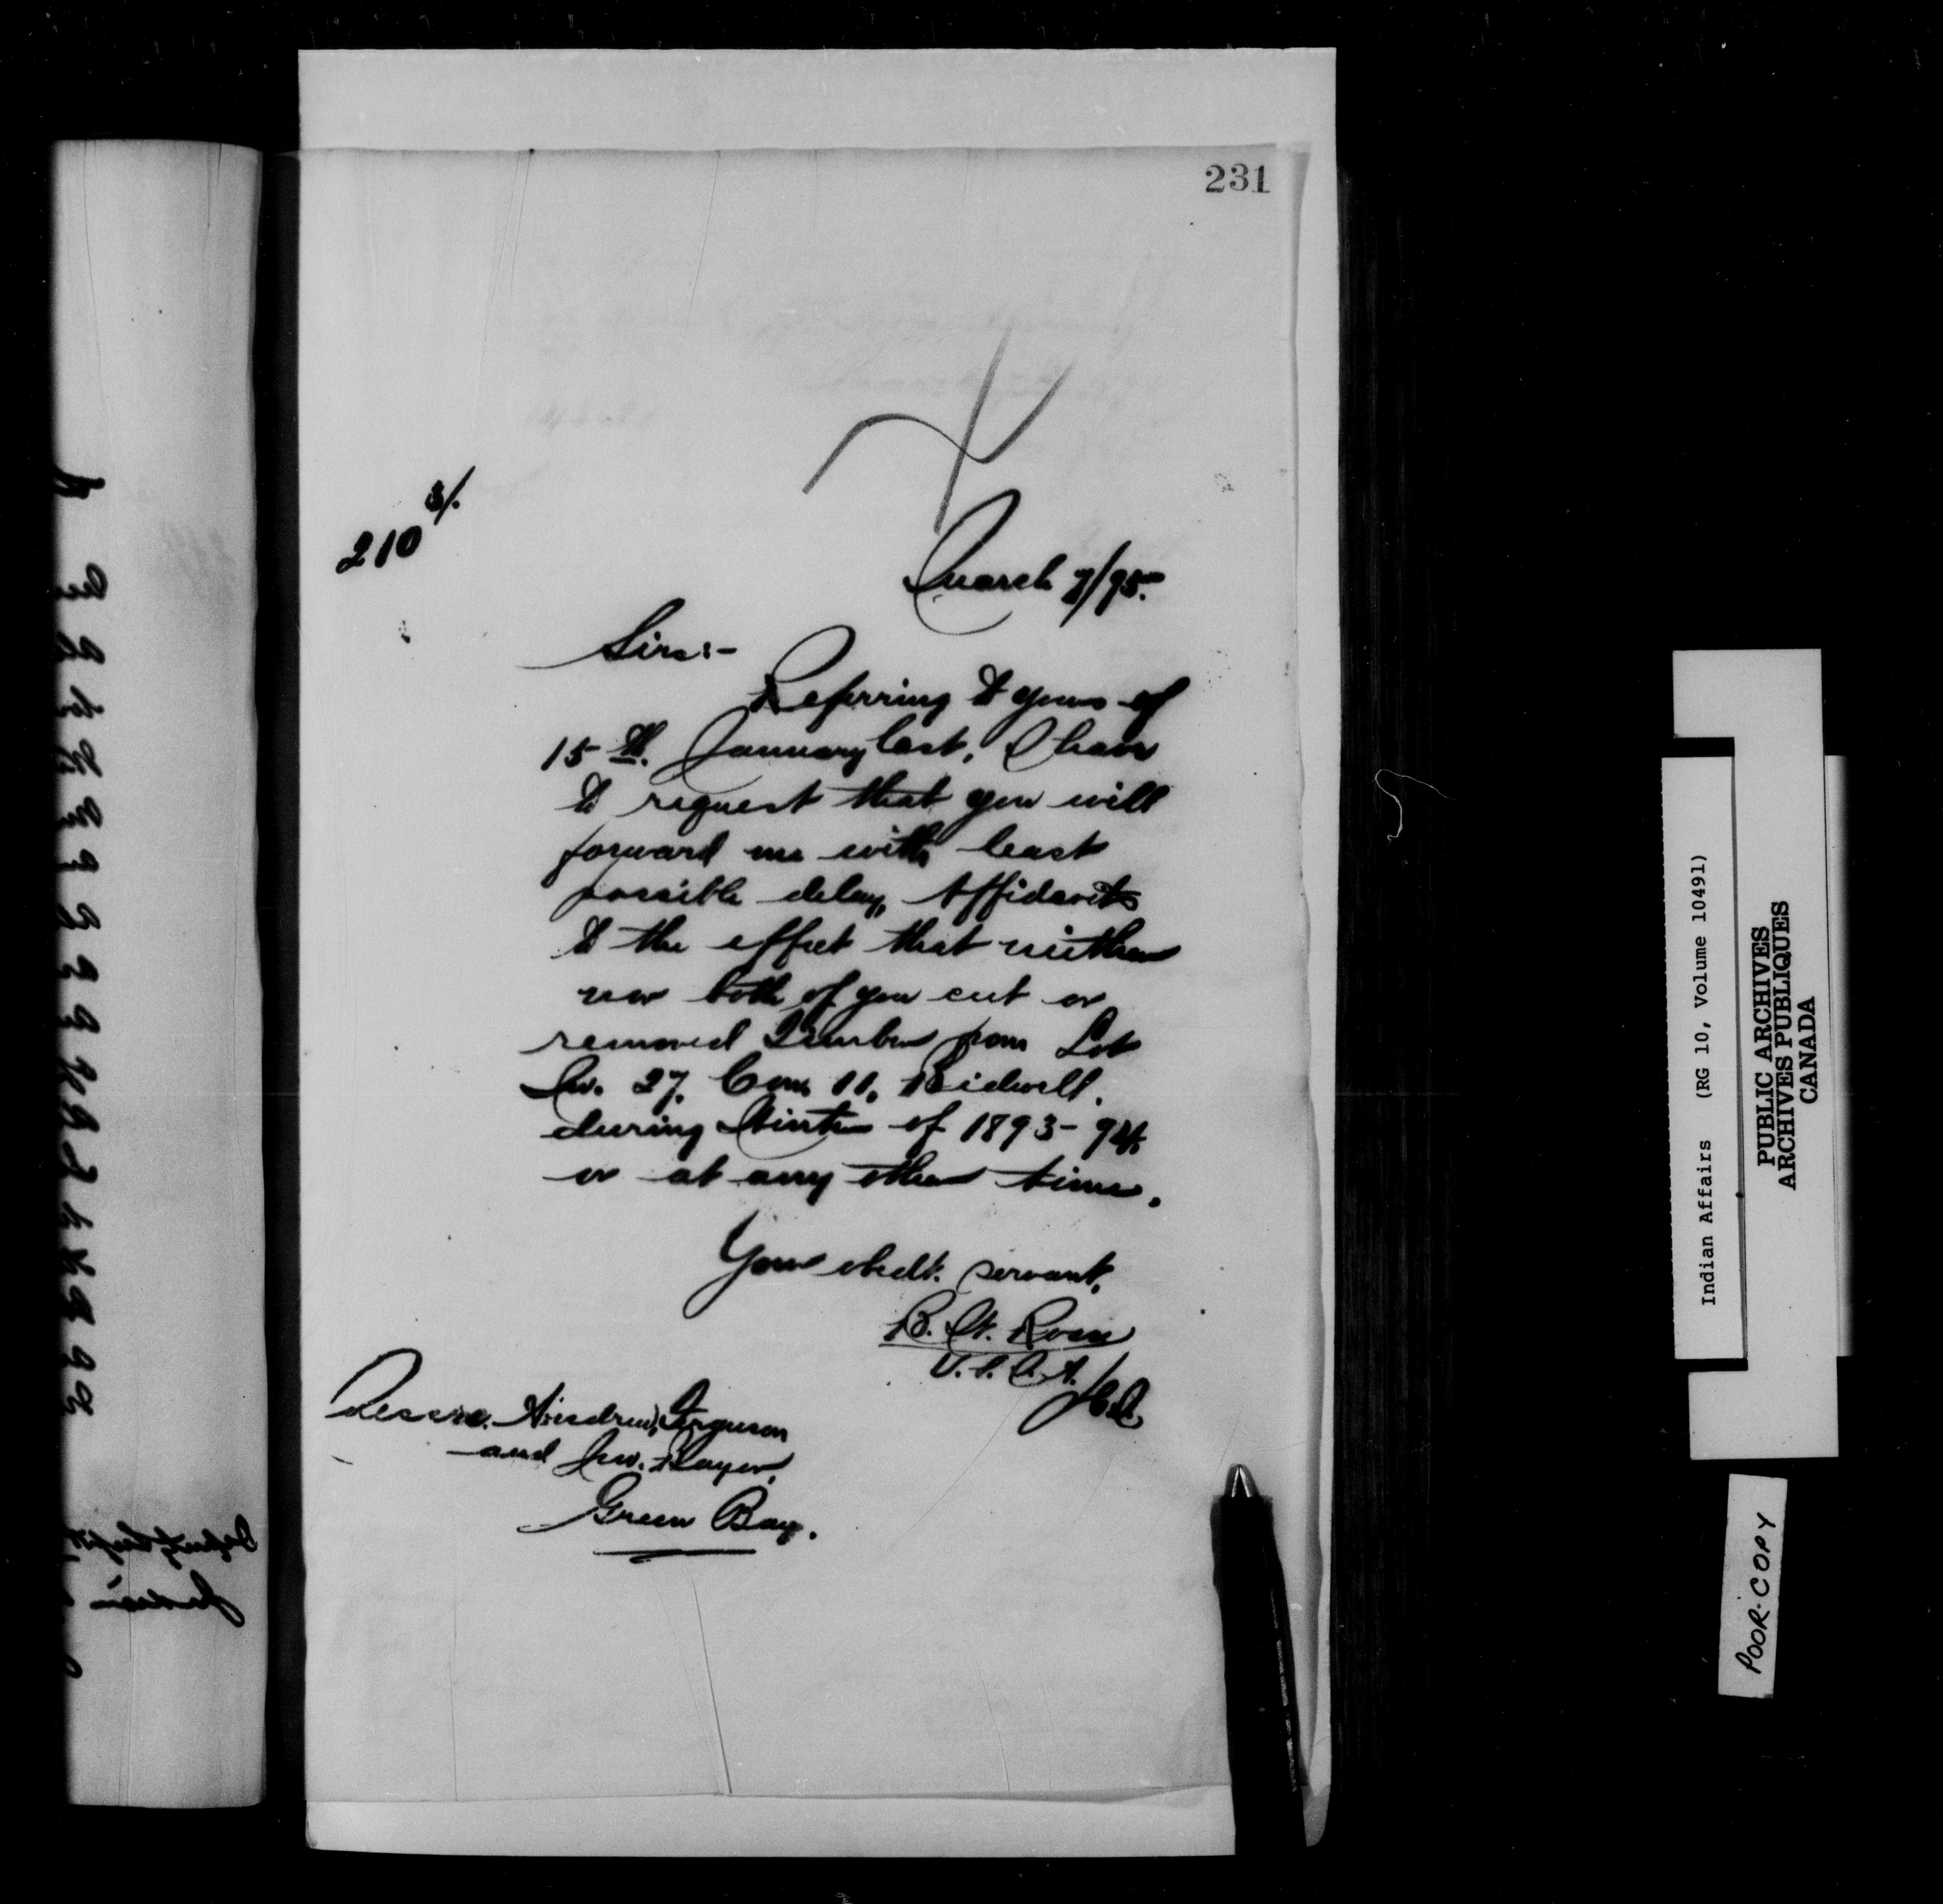 231
210 3/.
March 7/95.
Sirs:-
Referring to yours of
15th. January last, I have
to request that you will
forward me with least
possible delay, Affidavits
to the effect that neither
nor both of you cut or
removed Timber from Lot
No. 27, Con. 11, Bidwell,
during Winter of 1893-94,
or at any other time.
Your obedt. servant,
B. W. Ross
V.I.L.A.
Messrs. Andrew Ferguson
and Jno.
Green Bay.
Indian Affairs (RG 10, Volume 10491)
PUBLIC ARCHIVES
ARCHIVES PUBLIQUES
CANADA
POOR-COPY